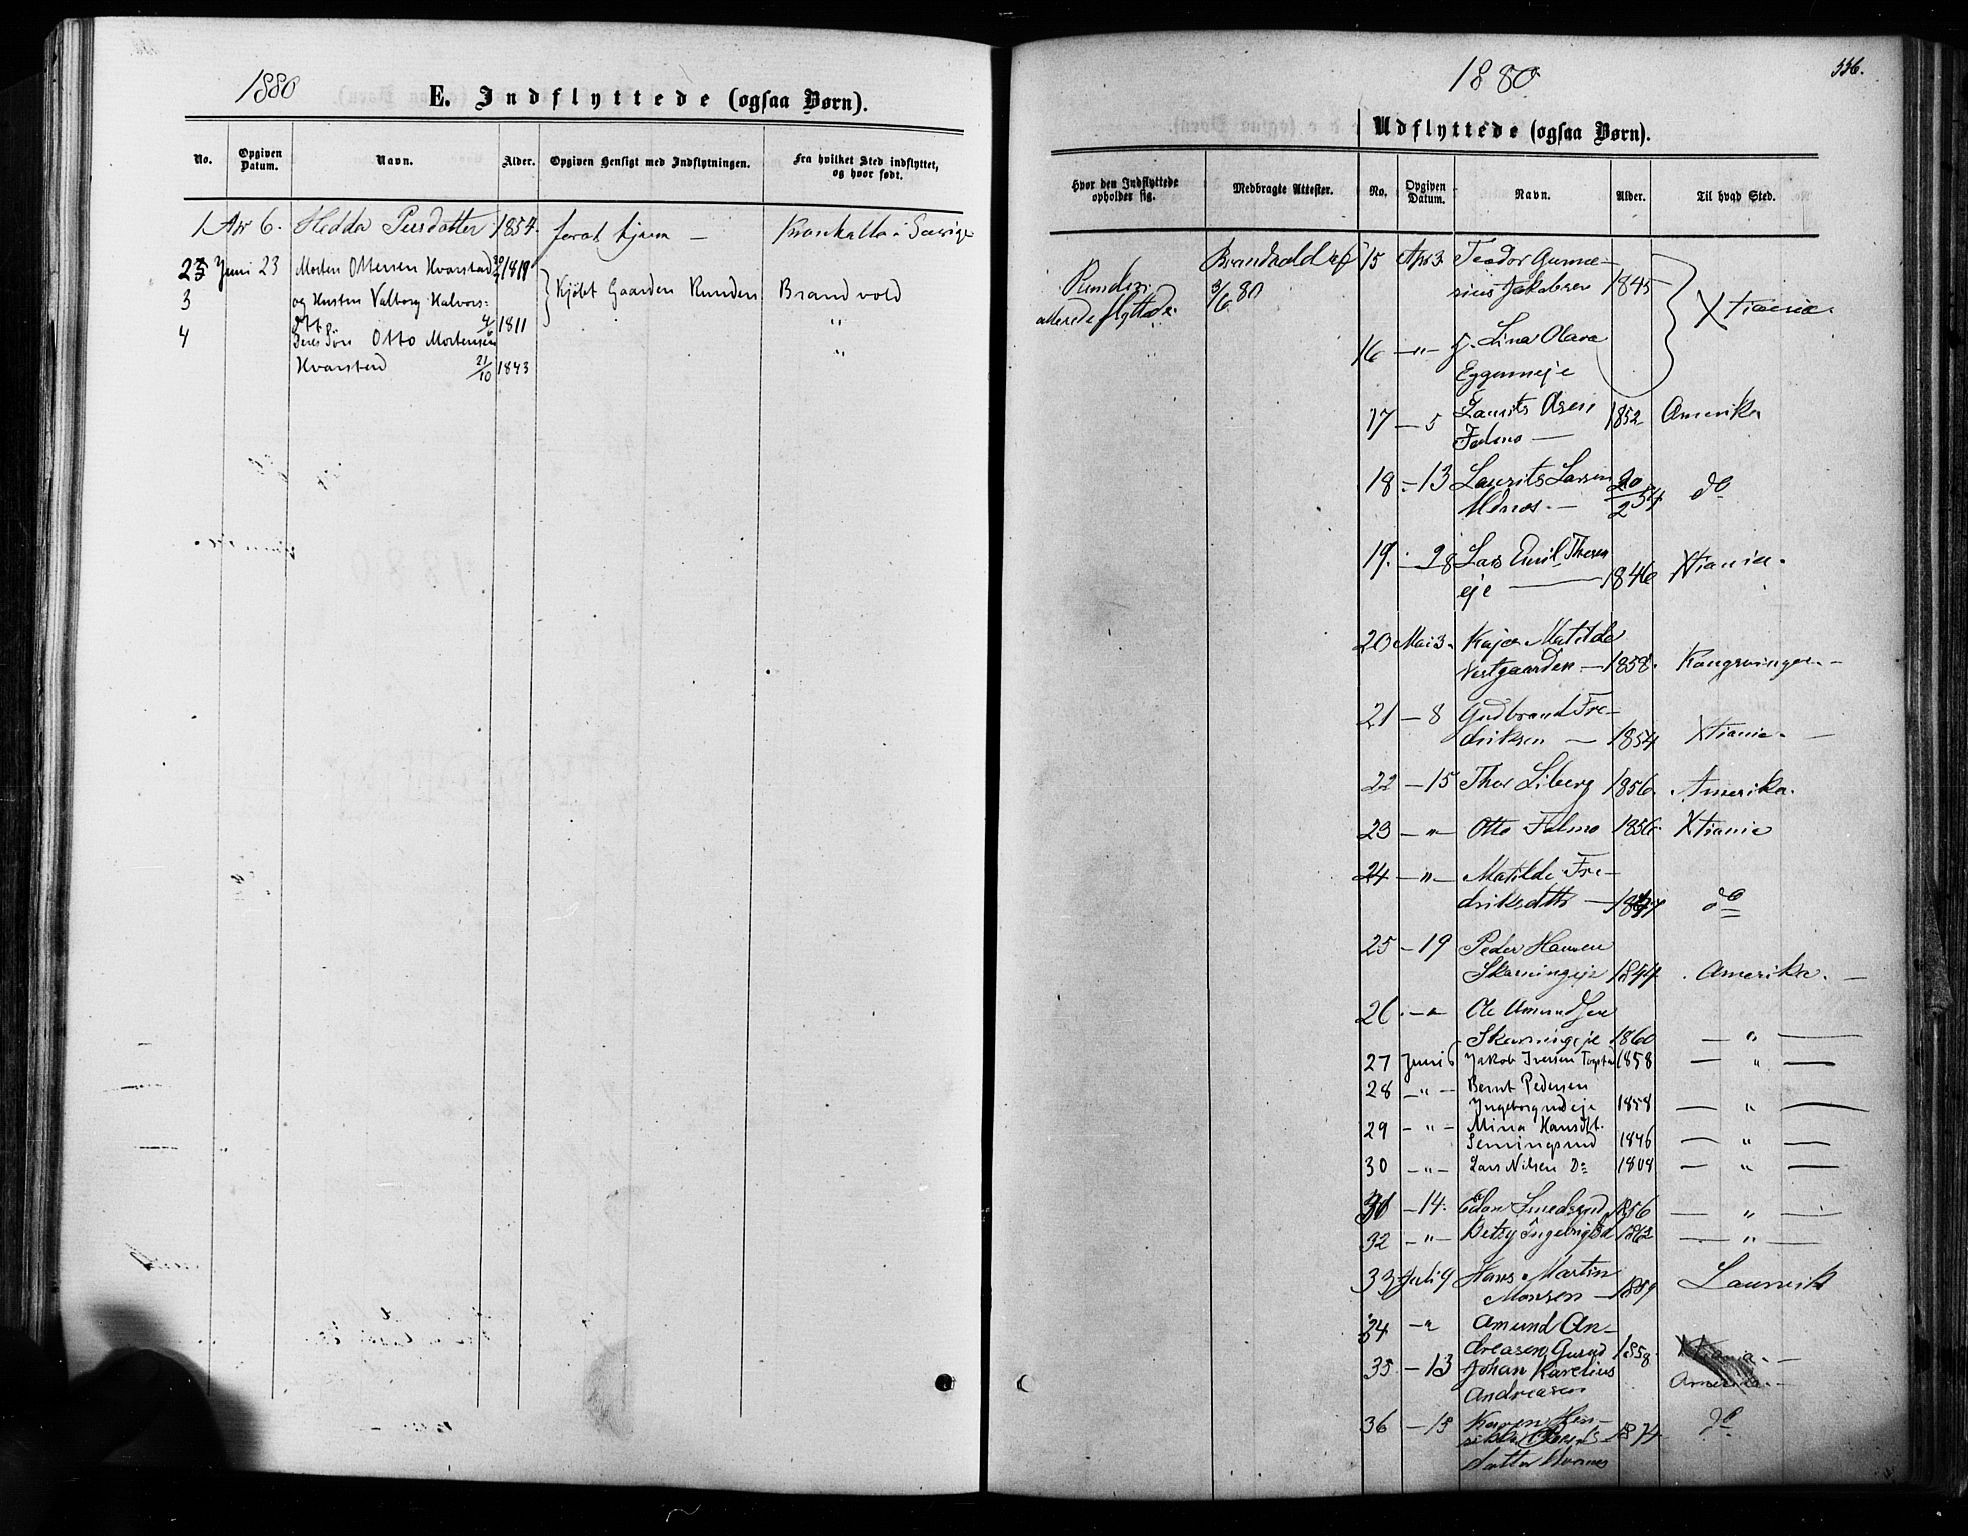 1880
E. Indflyttede (ogsaa Børn).
No. Opgiven Datum. Navn. Alder. Opgiven Hensigt med Indflytningen. Fra hvilket Sted indflyttet, og hvor født.
1 Apr 6. Hedda Persdatter 1854. for at tjene —
2 Juni 23 Morten Ottersen Hvarstad 1819 Kjøbt Gaarden Runden Brandvold
3 og Hustru Valborg Halvors: "
dtt. 4/6 1811
4 Deres Søn Otto Mortensen "
Hvarstad 21/10 1843
1880
336.
Udflyttede (ogsaa Børn).
Hvor den Indflyttede opholder sig. Medbragte Attester. No. Opgiven Datum. Navn. Alder. Til hvad Sted.
Runden
allerede flyttede.
Brandvold af
3/6 80
15 Apr 3. Teodor Gunne-
rius Jakobsen 1845 Xtiania.
16 — " — Lina Olava
Eggenneje
17 — 5 Laurits Olsen 1852 Amerika
Falmo —
18 — 13 Laurits Larsen 20/2 54 do
19. — 28 Lars Emil Thesen
eje — 1846 Xtiania.
20 Mai 3. Kaja Matilde
Vestgaarden — 1858. Kongsvinger. —
21 — 8 Gudbrand Fre-
driksen — 1854 Xtiania. —
22 — 15 Thor Liberg 1856. Amerika.
23 — " — Otto Falmo 1856. Xtiania
24 — " — Matilde Fre-
driksdttr — do
25 — 19 Peder Hansen
Skarningeje 1844. Amerika. —
26 — " Ole Amundsen
Skarningeje 1860 — " —
27 Juni 6 Jakob Iversen 1858 — " —
28 — " — Bernt Pedersen
Ingeborgrudeje 1858 — " —
29 — " — Mina Hansdt.
Semingsrud 1846 — " —
30 — " — Lars Nilsen Do 1808 — " —
31 — 14. Edon Smedsrud 1856 — " —
32 — " — Betsy 1862 — " —
33 Juli 9 Hans Martin
Monsen — 1859 Laurvik
34 — " Amund An-
dreasen 1858. Xtiania. —
35 — 13 Johan Karelius
Andreasen Amerika. —
36 — 15 Karen Hen-
rikke 1874. do
datter